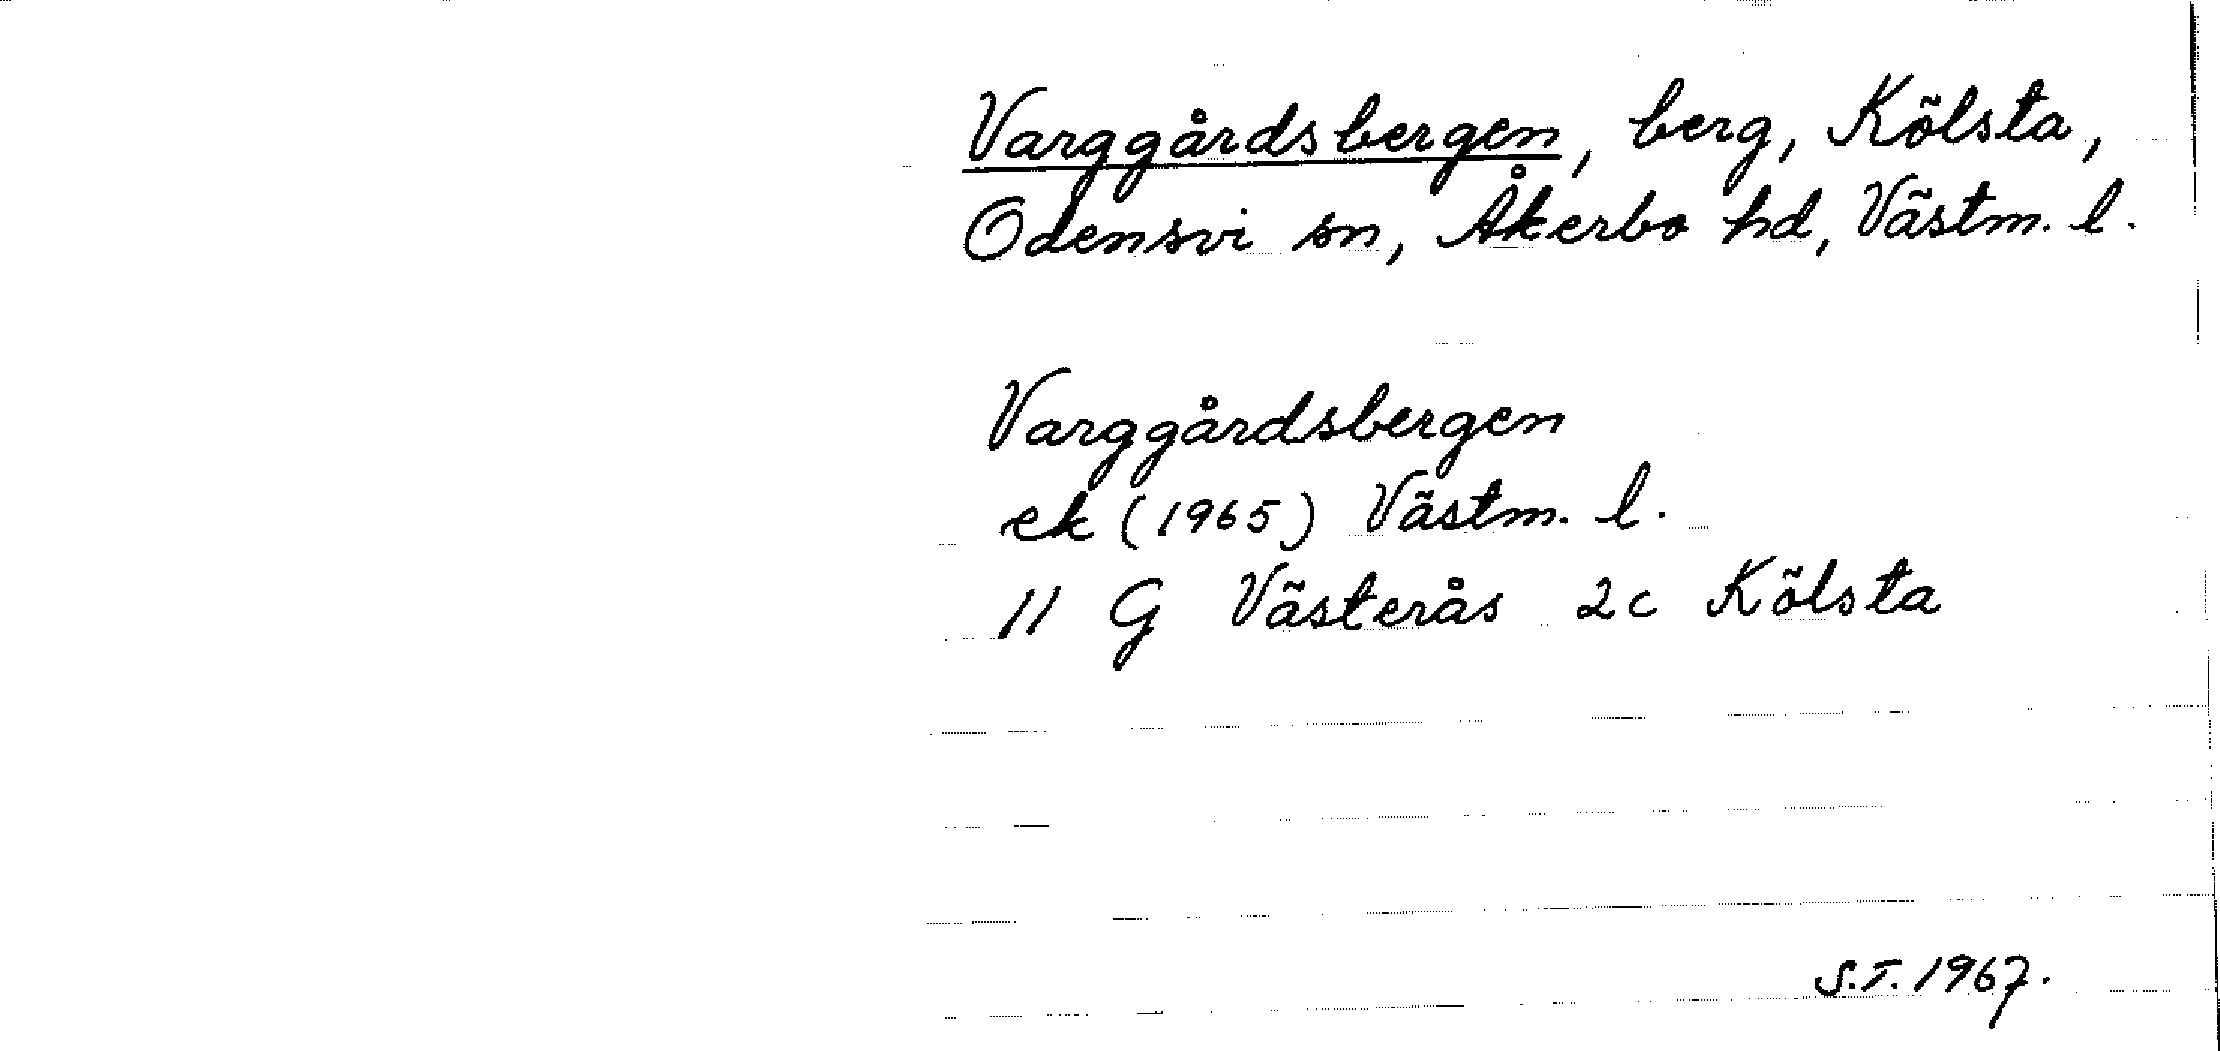 Varggårdsbergen, berg, Kölsta,
Odensvi sn, Åkerbo hd, Västm. l.
Varggårdsbergen
ek (1965) Västm. l.
11 G Västerås 2c Kölsta
S.T. 1967.